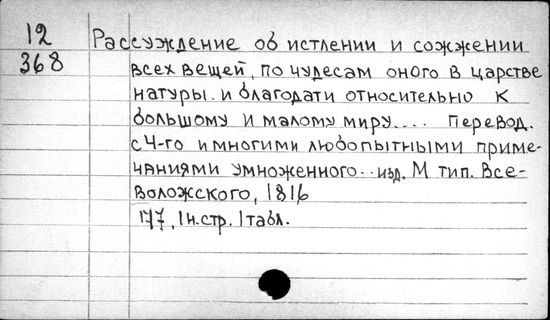 12 Рассуждение об истлении и сожжении
368 всех вещей, по чудесам оного в царстве
натуры и благодати относительно к
большому и малому миру.... Перевод.
с 4-го и многими любопытными приме-
чаниями умноженного.. изд. М тип. Все-
воложского, 1816
177, 1н.стр. 1табл.